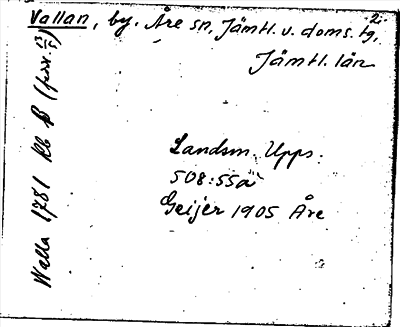 2.
Vallan, by. Åre sn, Jämtl. v. doms. tg,
Jämtl. län
Landsm. Upps.
508:55a
Geijer 1905 Åre
Walla 1781 Kb B